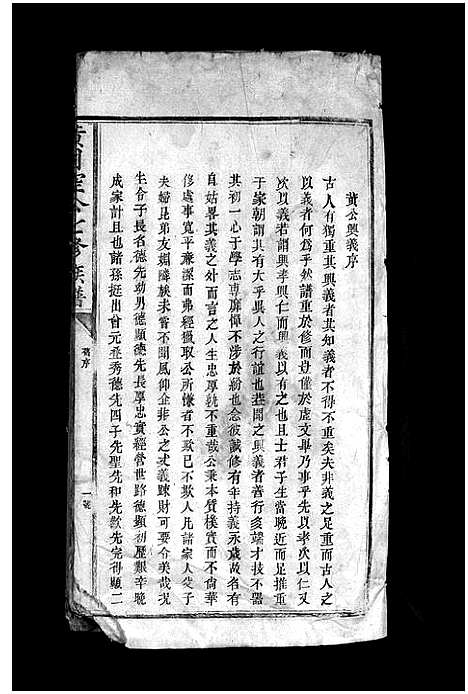 黄公興義序
古人有獨重其興義者其知義者不得不重矣夫非義之足重而古人之
以義者何為乎然諸重於修而豈僅於虛文畢乃事乎先以孝次以仁又
次以義若謂興孝興仁而興義以有之也且士君子生當晚近而足推重
于家朝謂其有大乎異人之行誼也甚聞之興義者善行多端才技不器
其初一心于學志專靡惲不涉於紛也念彼誠修有年持義永歲故省有
自姑畧其義之处而言之人生忠厚孰不重哉公秉本質樸實而不尚華
修處事寬平兼謀而弗經獵取公所憎者不敢已不欺人凡諸家人父子
夫婦昆弟友媚隣族未嘗不聞風仰企非公之丈義疎財可要令美哉况
生令子長名德先幼男德顯德先長厚忠實經營世路德顯初歷艱辛晚
成家計且也諸孫挺出曾元並秀德先四子先聖先和先欽先完得顯二
族譜
舊序
一號